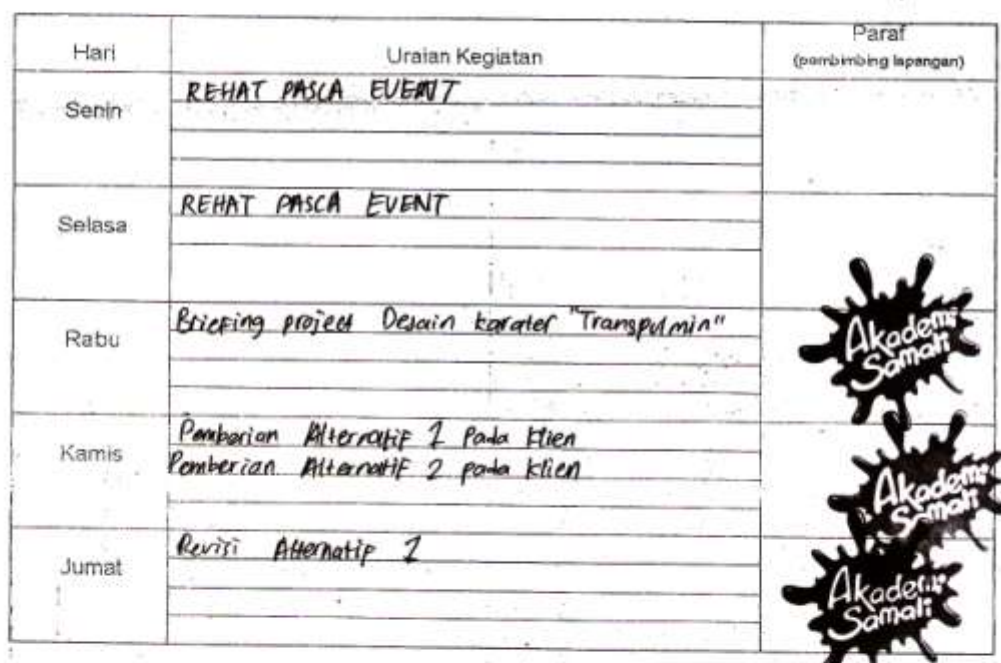 Hari Uraian Kegiatan Paraf
(pembimbing lapangan)
Senin REHAT PASCA EVENT
Selasa REHAT PASCA EVENT
Rabu Briefing project Desain karater "Transpulmin"
Akademi
Samali
Kamis Pemberian Alternatif 1 Pada klien
Pemberian Alternatif 2 pada klien
Akademi
Samali
Jumat Revisi Alternatif 1
Akademi
Samali